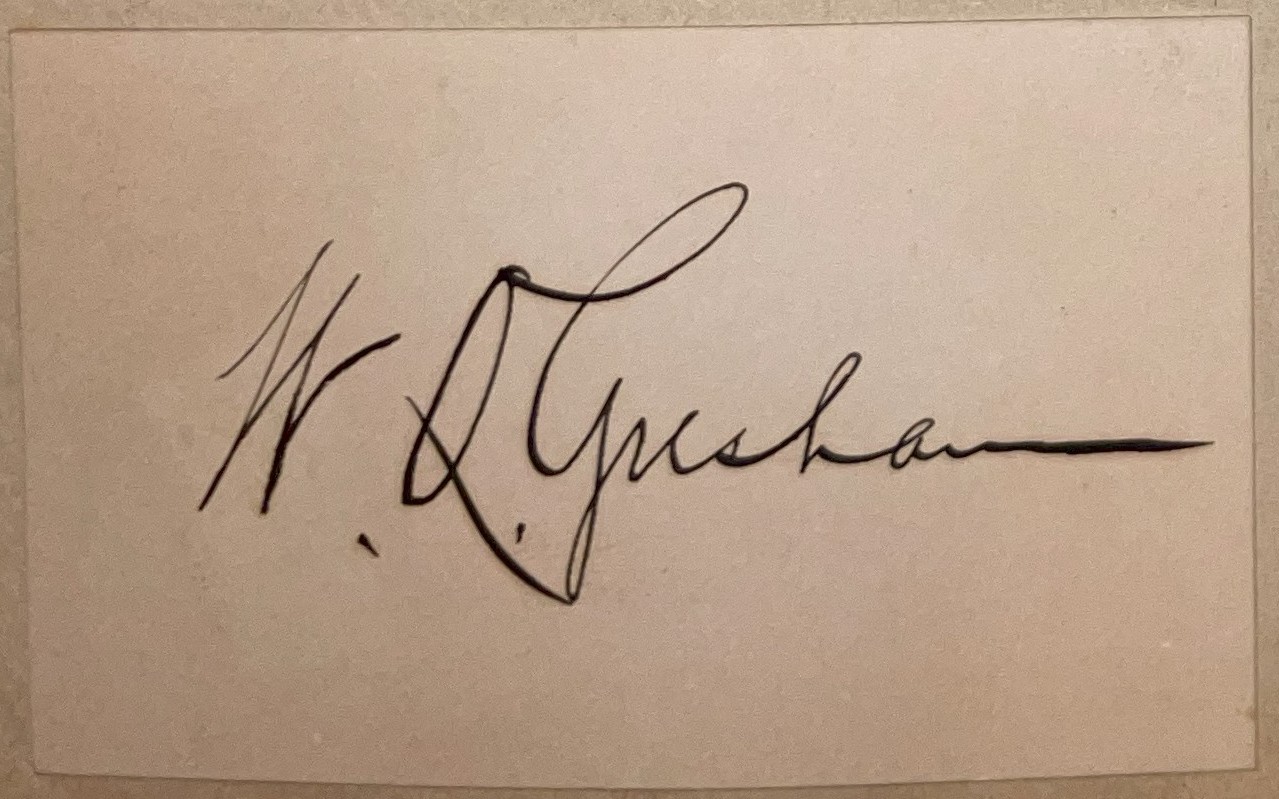 W. Q. Gresham